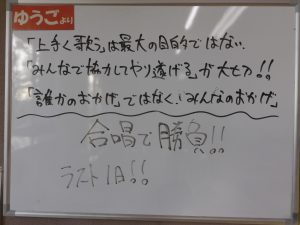 ゆうごより
「上手く歌う」は最大の目的ではない。
「みんなで協力してやり遂げる」が大セカ!!
「誰かのおかげ」ではなく、「みんなのおかげ」
合唱で勝負!!
ラスト1日!!